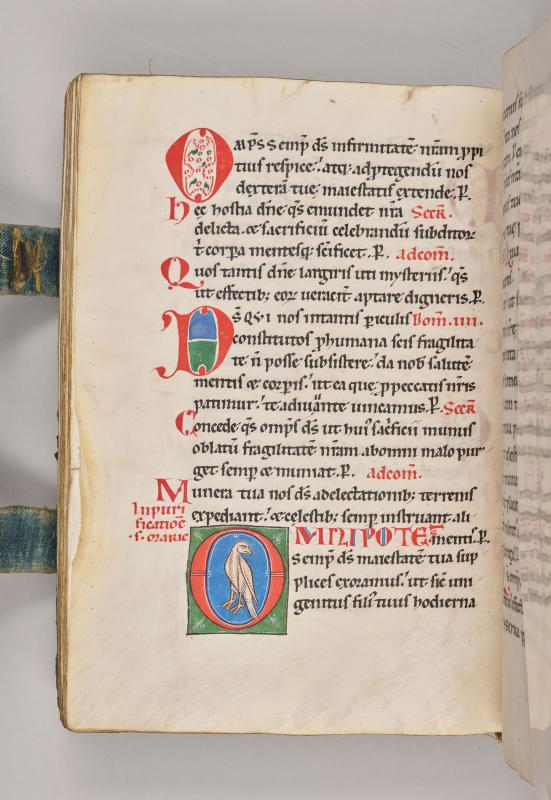 OMPS Semp̄ ds̄ infirmitatē nr̄am p̱pi
tius respice. atq; ad ptegendū nos
dexterā tue maiestatis extende. P.
Hec hostia dn̄e qs̄ emundet nr̄a Secr̄.
delicta. & sacrificiū celebrandū subditor
t̄ corpa mentesq; sc̄ificet. P. adcom̄.
Quos tantis dn̄e largiris uti mysteriis. qs̄
ut effectib; eor̄ ueracit̄ aptare digneris. P.
DS̄ QVI nos in tantis piculis Dom̄. IIII.
constitutos p humana scis fragilita
te n̄ posse subsistere. da nob̄ salutē
mentis & corpis. ut ea que p peccatis nr̄is
patimur. te adiuuante uincamus. P. Secr̄
Concede qs̄ omps̄ ds̄ ut hui' sacficii munus
oblatū fragilitatē nr̄am ab omni malo pur
get semp & muniat. P. adcom̄.
Munera tua nos ds̄ a delectationib; terrenis
expediant. & celestib; semp instruant ali
mentis. P.
In puri
ficatiōe
s. marie
OMNIPOTES
Semp̄ ds̄ maiestatē tuā sup
plices exoramus. ut sic̄ uni
genitus fili' tuus hodierna